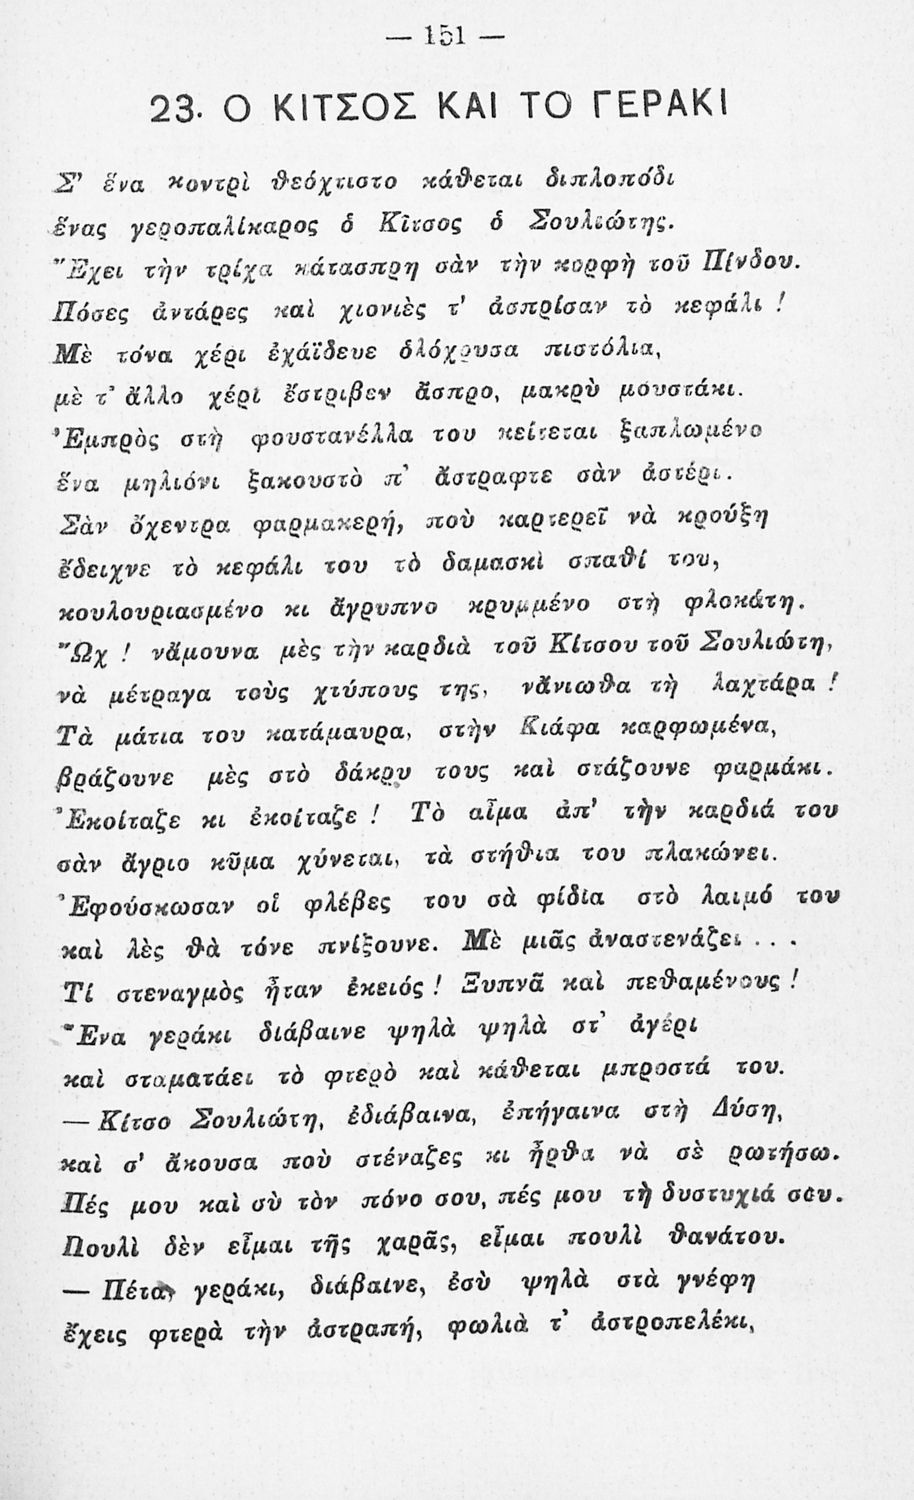 — 151 —
23. Ο ΚΙΤΣΟΣ ΚΑΙ ΤΟ ΓΕΡΑΚΙ
Σ' ἕνα κοντρὶ θεόχτιστο κάθεται διπλοπόδι
ἕνας γεροπαλίκαρος ὁ Κῖτσος ὁ Σουλιώτης.
Ἔχει τὴν τρίχα κάτασπρη σὰν τὴν κορφὴ τοῦ Πίνδου.
Πόσες ἀντάρες καὶ χιονιὲς τ' ἀσπρίσαν τὸ κεφάλι !
Μὲ τόνα χέρι ἐχάϊδευε ὁλόχρυσα πιστόλια,
μὲ τ' ἄλλο χέρι ἔστριβεν ἄσπρο, μακρὺ μουστάκι.
Ἐμπρὸς στὴ φουστανέλλα του κείτεται ξαπλωμένο
ἕνα μηλιόνι ξακουστὸ π' ἄστραφτε σὰν ἀστέρι.
Σὰν ὄχεντρα φαρμακερή, ποὺ καρτερεῖ νὰ κρούξη
ἔδειχνε τὸ κεφάλι του τὸ δαμασκὶ σπαθί του,
κουλουριασμένο κι ἄγρυπνο κρυμμένο στὴ φλοκάτη.
Ὤχ ! νἄμουνα μὲς τὴν καρδιὰ τοῦ Κίτσου τοῦ Σουλιώτη,
νὰ μέτραγα τοὺς χτύπους της, νἄνιωθα τὴ λαχτάρα !
Τὰ μάτια του κατάμαυρα, στὴν Κιάφα καρφωμένα,
βράζουνε μὲς στὸ δάκρυ τους καὶ στάζουνε φαρμάκι.
Ἐκοίταζε κι ἐκοίταζε ! Τὸ αἷμα ἀπ' τὴν καρδιά του
σὰν ἄγριο κῦμα χύνεται, τὰ στήθια του πλακώνει.
Ἐφούσκωσαν οἱ φλέβες του σὰ φίδια στὸ λαιμό του
καὶ λὲς θὰ τόνε πνίξουνε. Μὲ μιᾶς ἀναστενάζει . . .
Τί στεναγμὸς ἦταν ἐκειός ! Ξυπνᾶ καὶ πεθαμένους !
Ἕνα γεράκι διάβαινε ψηλὰ ψηλὰ στ' ἀγέρι
καὶ σταματάει τὸ φτερὸ καὶ κάθεται μπροστά του.
— Κίτσο Σουλιώτη, ἐδιάβαινα, ἐπήγαινα στὴ Δύση,
καὶ σ' ἄκουσα ποὺ στέναζες κι ἦρθα νὰ σὲ ρωτήσω.
Πές μου καὶ σὺ τὸν πόνο σου, πές μου τὴ δυστυχιά σου.
Πουλὶ δὲν εἶμαι τῆς χαρᾶς, εἶμαι πουλὶ θανάτου.
— Πέτα, γεράκι, διάβαινε, ἐσὺ ψηλὰ στὰ γνέφη
ἔχεις φτερὰ τὴν ἀστραπή, φωλιὰ τ' ἀστροπελέκι,